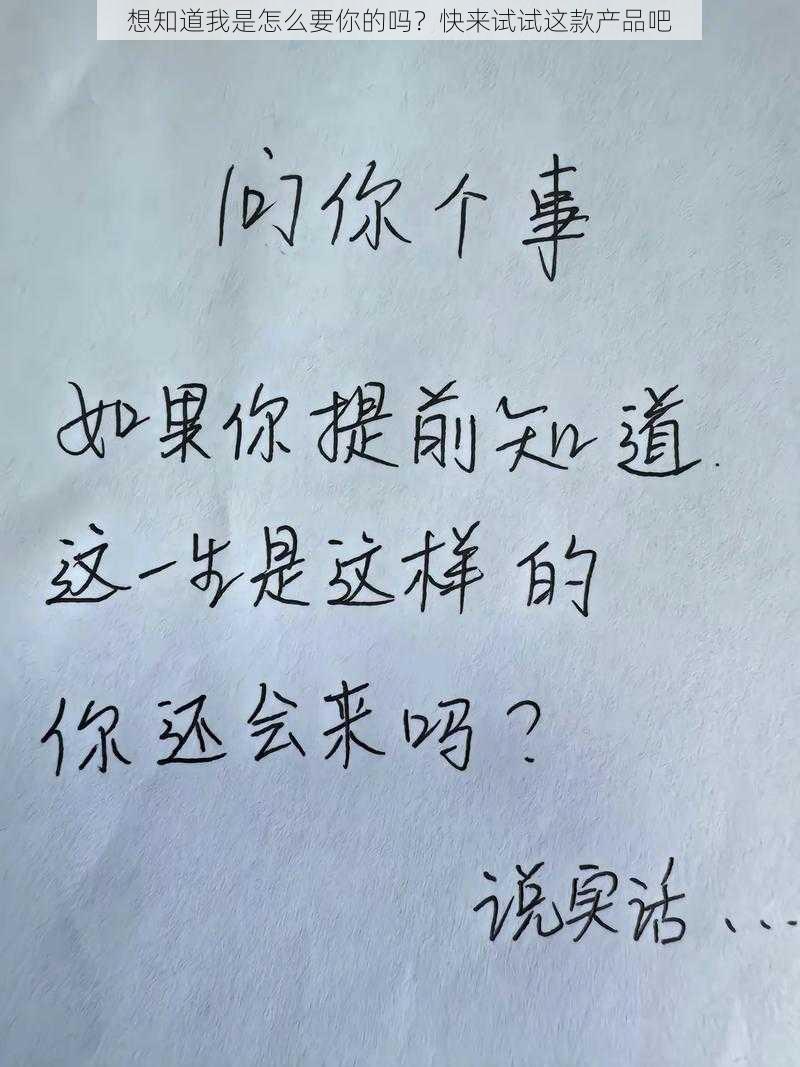 想知道我是怎么要你的吗？快来试试这款产品吧
问你个事
如果你提前知道.
这一生是这样的
你还会来吗？
说实话...